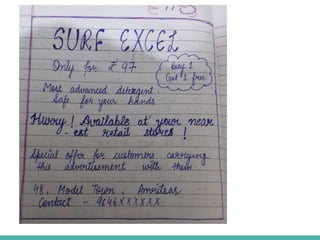 SURF EXCEL
Only for ₹ 97
Buy 1
Get 1 free
Most advanced detergent
Safe for your hands
Hurry! Available at your near
- est retail stores!
Special offer for customers carrying
the advertisement with them.
48, Model Town, Amritsar
Contact - 9646XXXXXX